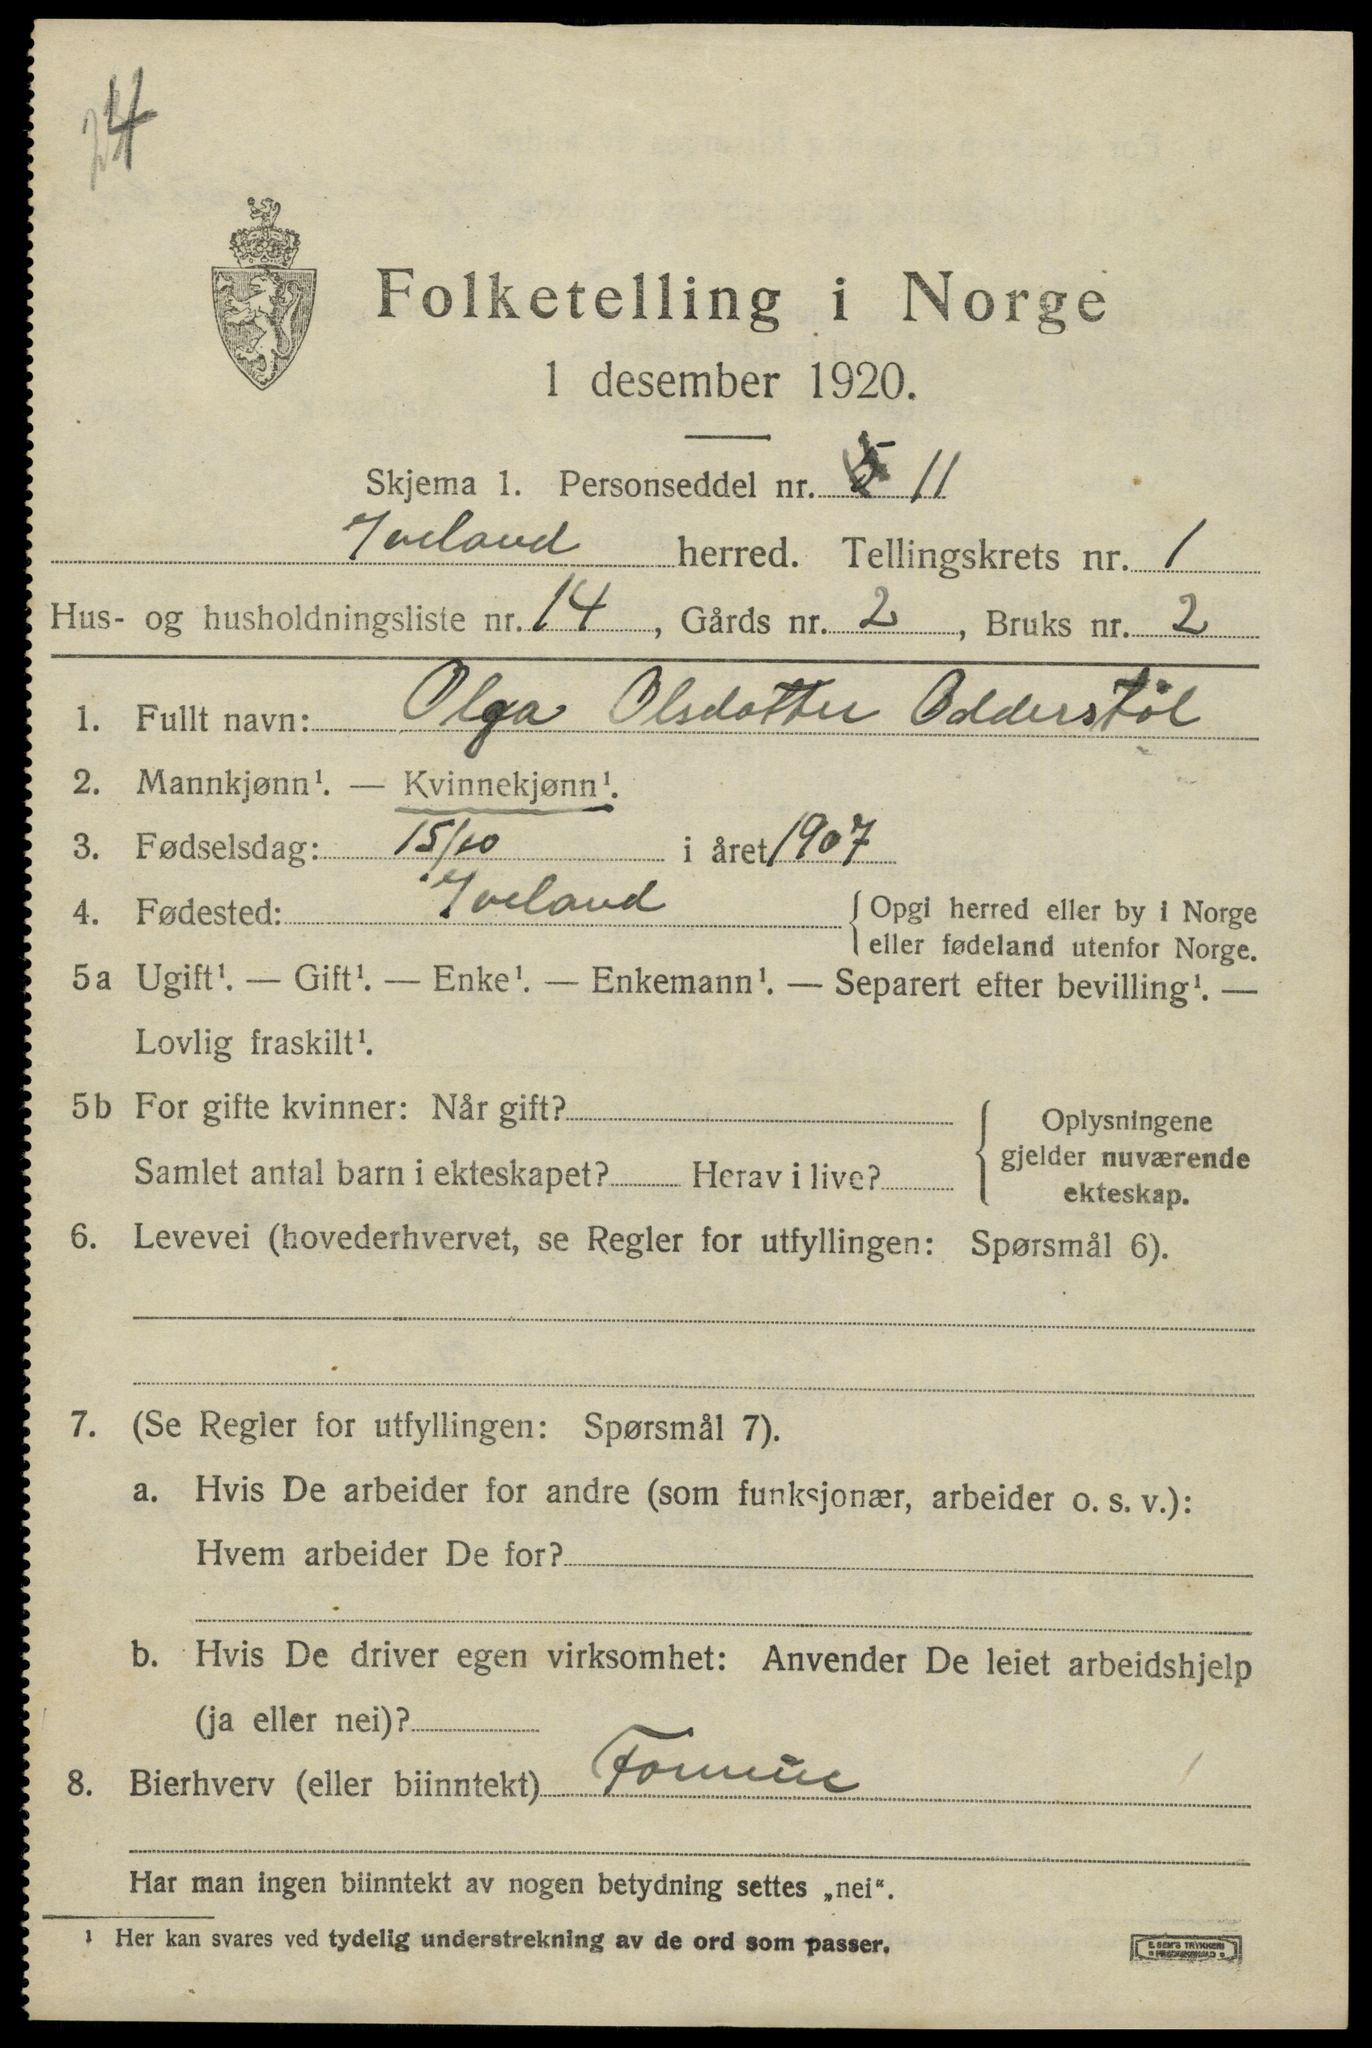 24
Folketelling i Norge
1 desember 1920.
Skjema 1. Personseddel nr. 11
Iveland herred. Tellingskrets nr. 1
Hus- og husholdningsliste nr. 14, Gårds nr. 2, Bruks nr. 2
1. Fullt navn: Olga Olsdotter Odderstøl
2. Mannkjønn¹. — Kvinnekjønn¹.
3. Fødselsdag: 15/10 i året 1907
4. Fødested: Iveland { Opgi herred eller by i Norge
eller fødeland utenfor Norge.
5a Ugift¹. — Gift¹. — Enke¹. — Enkemann¹. — Separert efter bevilling¹. —
Lovlig fraskilt¹.
5b For gifte kvinner: Når gift?
Samlet antal barn i ekteskapet? Herav i live?
Oplysningene
gjelder nuværende
ekteskap.
6. Levevei (hovederhvervet, se Regler for utfyllingen: Spørsmål 6).
7. (Se Regler for utfyllingen: Spørsmål 7).
a. Hvis De arbeider for andre (som funksjonær, arbeider o. s. v.):
Hvem arbeider De for?
b. Hvis De driver egen virksomhet: Anvender De leiet arbeidshjelp
(ja eller nei)?
8. Bierhverv (eller biinntekt) Formue
Har man ingen biinntekt av nogen betydning settes „nei“.
¹ Her kan svares ved tydelig understrekning av de ord som passer.
E. SEM'S TRYKKERI
FREDRIKSHALD